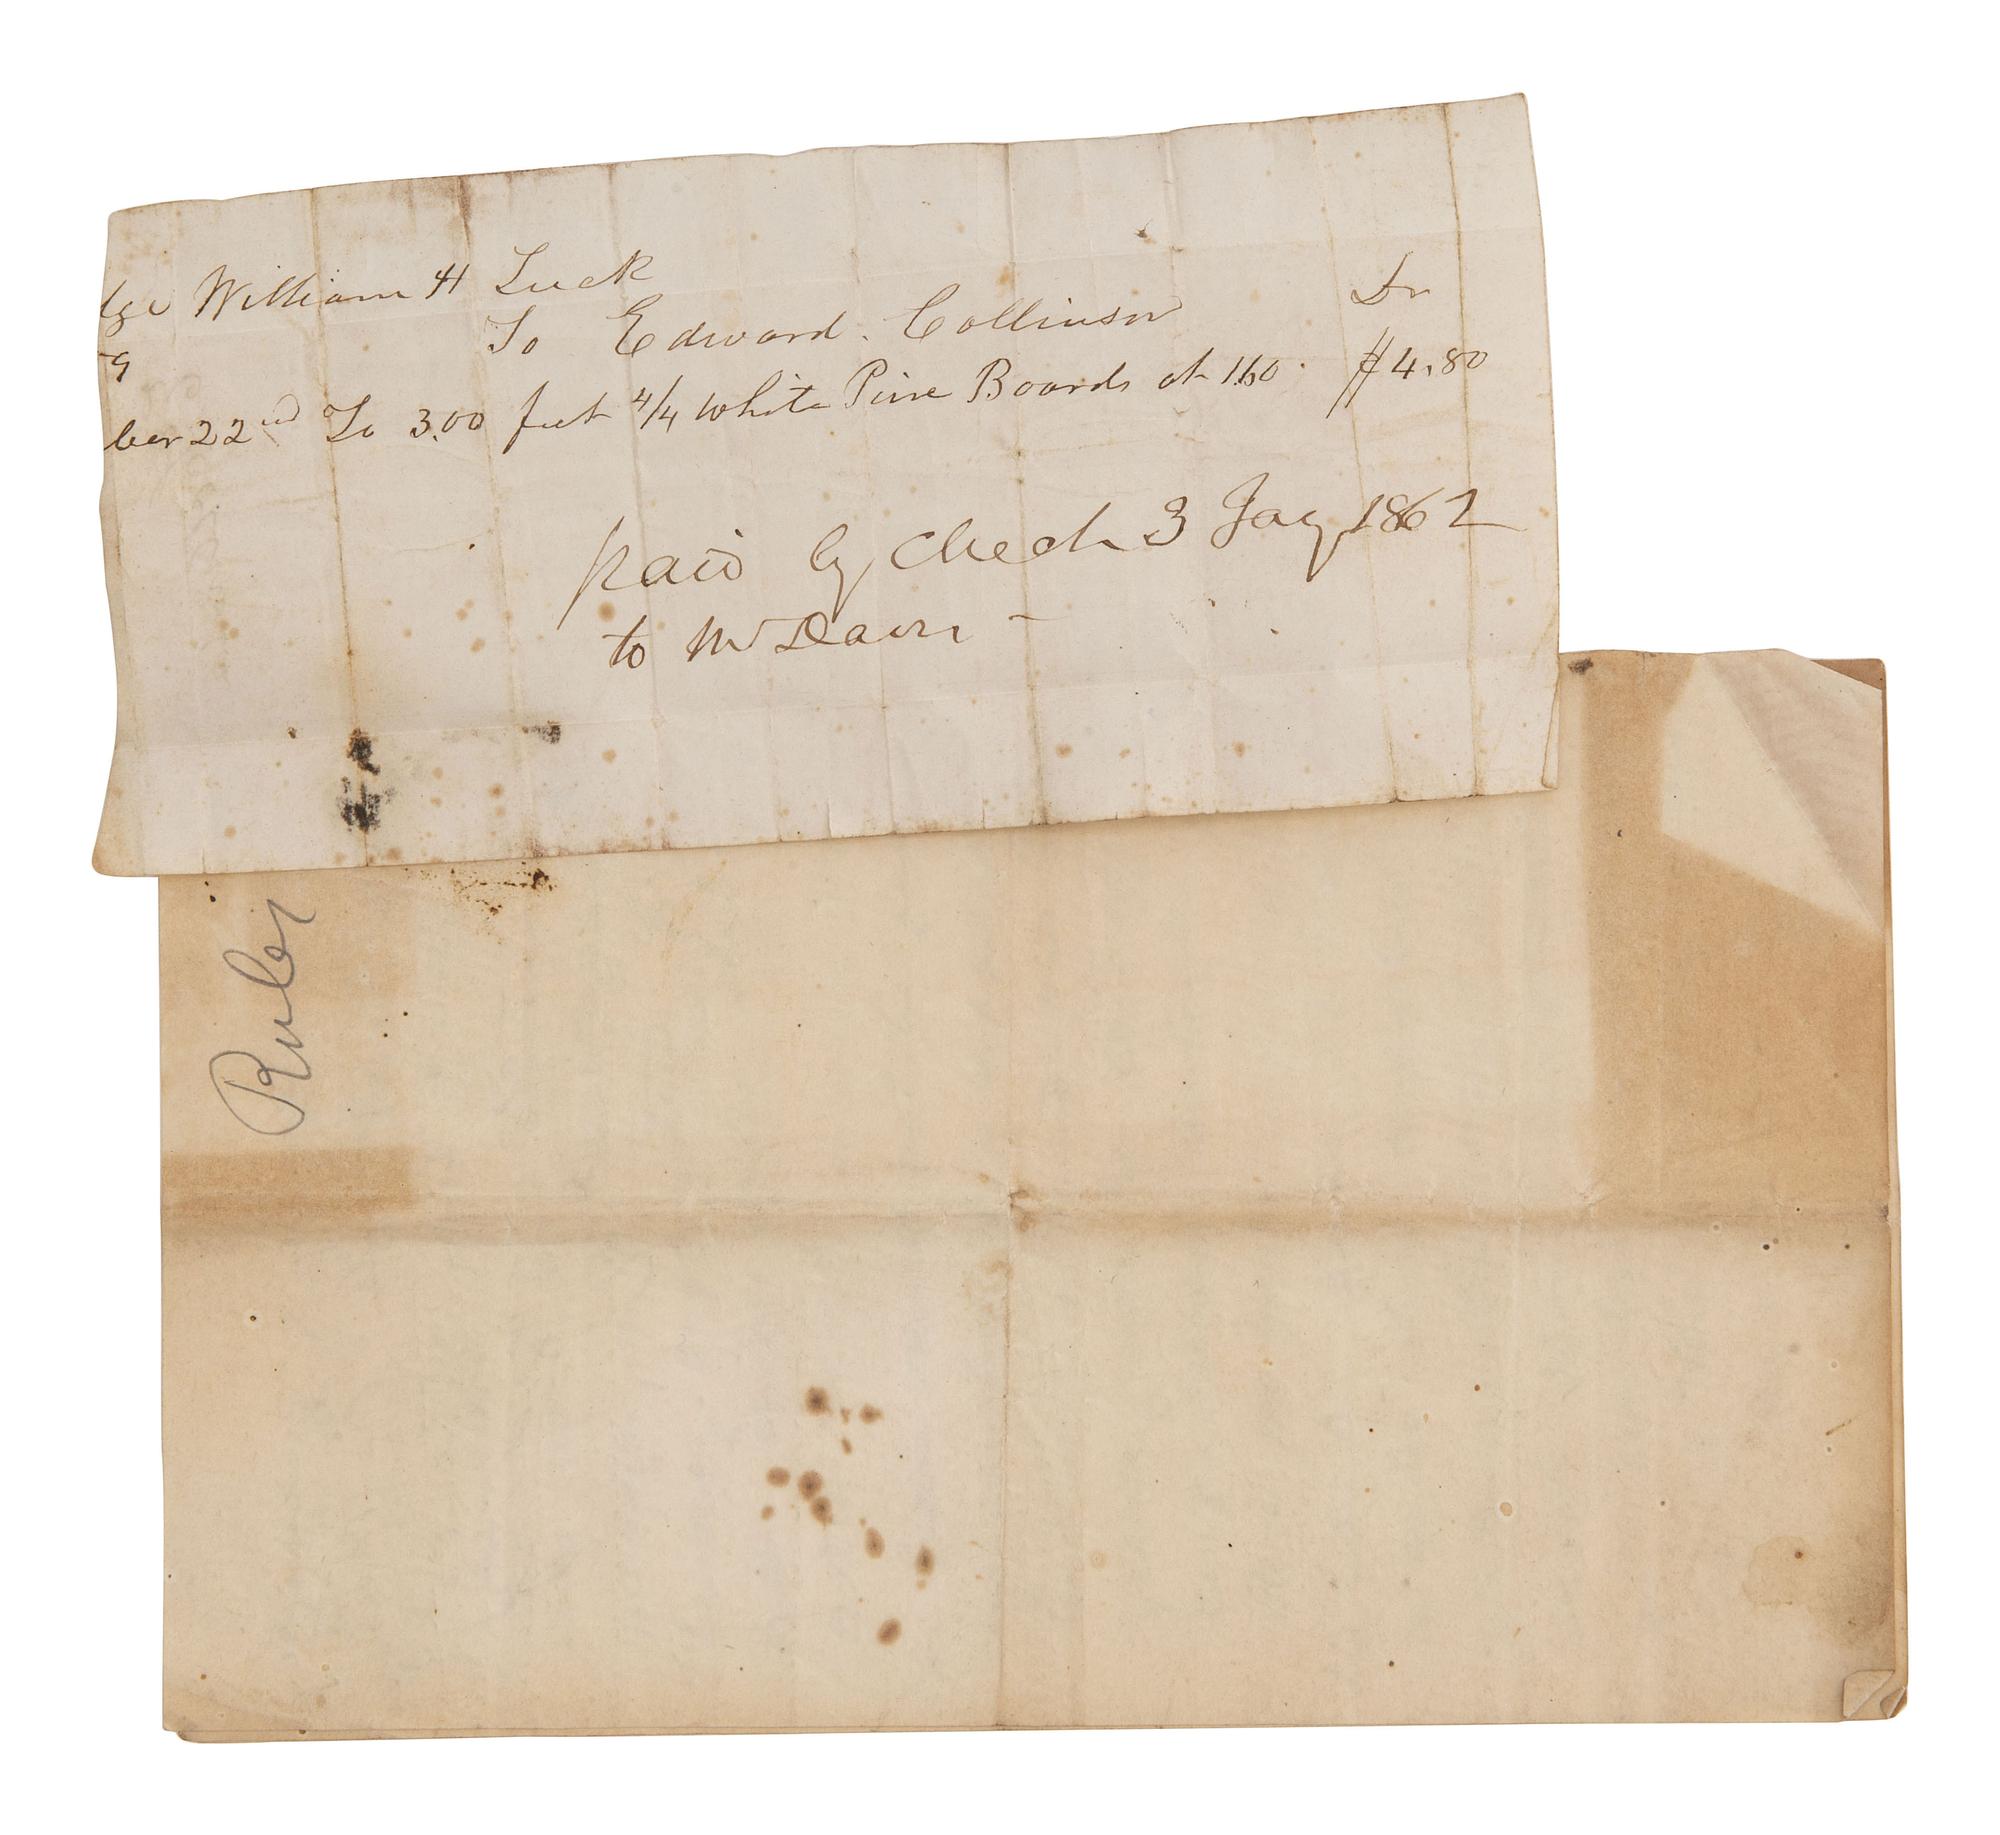 dge William H Tuck
To Edward. Collinson Dr
9
ber 22nd To 3.00 feet 4/4 white Pine Boards at 1.60 $4.80
paid by Check 3 Jay 1862
to Mr Davis -
Rules